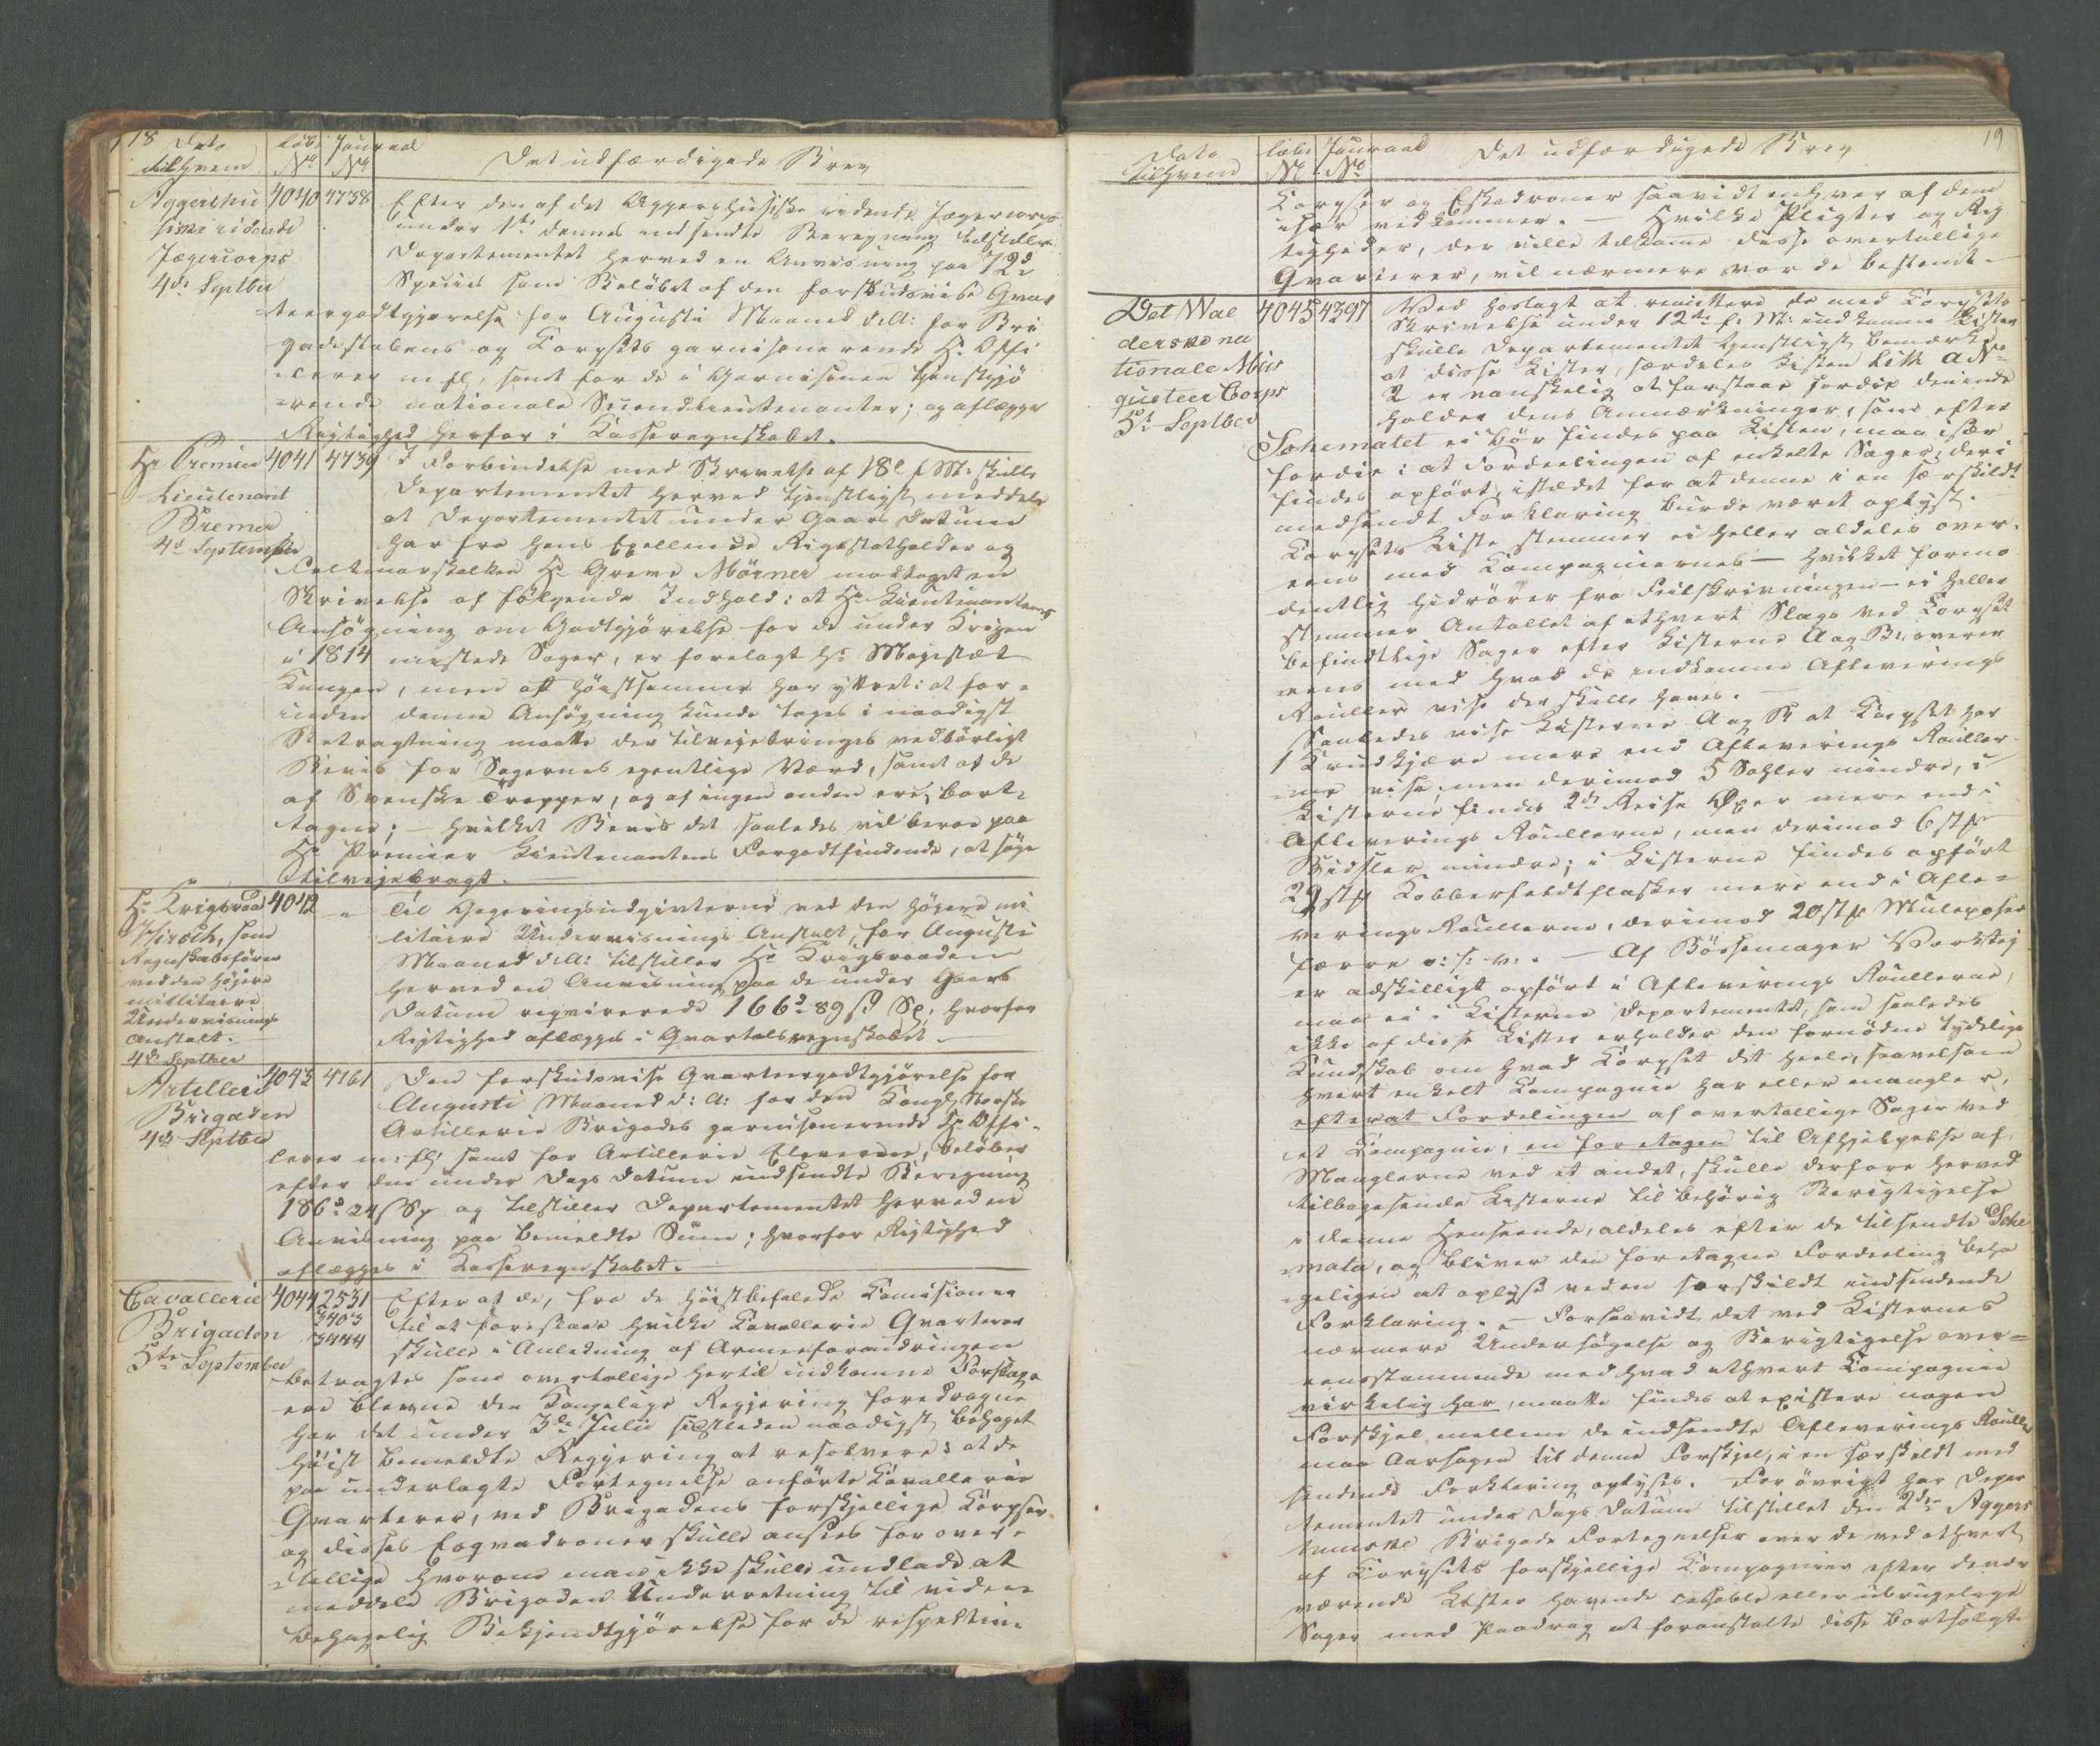 18
Dato
tilhvem
Løbe
No
Journal
No
Det udfærdigede Brev
Aggershu
siske ridende
Jægercorps
4de Septbr
4040
4738
Efter den af det Aggershusiske ridende Jægercorps
under 1ste dennes indsendte Beregning tilstiller
Departementet herved en Anvisning paa 72d
Species som Beløbet af den forskudsvise Qvar
teergodtgjørelse for Augusti Maaned d:A: for Bri
gadestabens og Corpsets garnisonerende Hr Offi
cerer m fl, samt for de i Garnisonen tjenstgjö
rende nationale Secondlieutenanter; og aflægges
Rigtighed herfor i Casseregnskabet.
Hr Premier
Lieutenant
Bremer
4d September
4041
4739
I Forbindelse med Skrivelse af 18e f: M: skulle
Departementet herved tjenstligst meddele
at Departementet under Gaars Datum
har fra Hans Excellence Rigsstatholder og
Feltmarskalken Hr Greve Mörner modtaget en
Skrivelse af følgende Indhold: at Hr Lieutenantens
Ansøgning om Godtgjørelse for de under Krigen
i 1814 mistede Sager, er forelagt Hs Majestæt
Kongen, men at Høistsamme har yttret: at for-
inden denne Ansøgning kunde tages i naadigst
Betragtning maatte der tilvejebringes vedbørligt
Beviis for Sagernes egentlige Værd, samt at de
af Svenske Tropper, og af ingen anden ere bort-
tagne; - hvilket Beviis det saaledes vil beroe paa
Hr Premier Lieutenantens Forgodtfindende, at søge
tilvejebragt.
Hr Krigsraad
Hirsch, som
Regnskabsfører
ved den høiere
militaire
Underviisnings
Anstalt.
4de Septber
4042
"
Til Gageringsudgivterne ved den høiere mi
litaire Underviisnings Anstalt, for Augusti
Maaned d:A: tilstiller Hr Krigsraaden
herved en Anviisning paa de under Gaars
Datum reqvirerede 166d 89 s Sp: hvorfor
Rigtighed aflægges i Qvartalsregnskabet.
Artilleri
Brigaden
4de Septber
4043
4761
Den forskudsvise Qvarteergodtgjørelse for
Augusti Maaned d: A: for den Kongl Norske
Artillerie Brigades garnisonerende Hr Offi-
cerer m: fl: samt for Artillerie Eleverne, beløber
efter den under Dags Datum indsendte Beregning
186d 24 s Sp og tilstiller Departementet herved en
Anviisning paa bemeldte Sum; hvorfor Rigtighed
aflægges i Casseregnskabet.
Cavallerie
Brigaden
5te September
4044
2531
3403
3444
Efter at de, fra de høistbefalede Comisioner
til at foreslaae hvilke Cavallerie Qvarterer
skulle i Anledning af Armeeforandringen
betragtes som overtallige hertil indkomne Forslage
ere blevne den Kongelige Regjering foredragne
har det under 3de Julii sidstleden naadigst behaget
høist bemeldte Regjering at resolvere: at de
paa underlagte Fortegnelse anførte Cavallerie
Qvarterer, ved Brigadens forskjellige Corpser
og disses Esqvadroner skulle ansees for over-
tallige hvorom man ikke skulle undlade at
meddele Brigaden Underretning til videre
behagelig Bekjendtgjørelse for de respektive
19
Dato
tilhvem
Løbe
No
Journal
No
Det udfærdigede Brev
Corpser og Eskadroner saavidt enhver af dem
især vedkommer. - Hvilke Pligter og Rig
tigheder, der ville tilkome disse overtallige
Qvarterer, vil nærmere vorde bestemt.
Det Wal
derske na
tionale Mus
queteer Corps
5te Septber
4045
4397
Ved hoslagt at remittere de med Corpsets
Skrivelse under 12te f: M: indkomne Lister
skulle Departementet tjenstligst bemærke
at disse Lister, særdeles Listen Litr A No
2 er vanskelig at forstaae fordie den inde
holder dens Anmærkninger, som efter
Schematet ei bør findes paa Listen, maa især
fordie: at Fordeelingen af enkelte Sager, deri
findes opført, istædet for at denne i en særskildt
medsendt Forklaring burde været oplyst.
Corpsets Liste stemmer ei heller aldeles over-
eens med Compagniernes - hvilket formo
dentlig hidrører fra Feilskrivningen - ei heller
stemmer Antallet af ethvert Slags ved Corpset
befindtlige Sager efter Listerne A og B: overeen
eens med hvad de indkomne Afleverings
Roueller vise der skulle haves.
Saaledes vise Listerne A og B at Corpset har
1 Krudkjære mere end Afleverings Rouller
ne vise, men derimod 5 Sahler mindre, i
Listerne findes 2de Reise Øxer mere end i
Afleverings Rouellerne, men derimod 6 stkr
Bidsler mindre; i Listerne findes opført
29 stkr Kobberfeldtflasker mere end i Afle-
verings Rouellerne, derimod 20 stkr Muleposer
færre o: s: v: - Af Bøssemager Værktøj
er adskilligt opført i Afleverings Rouellerne,
men ei i Listerne Departementet, som saaledes
ikke af disse Lister erholder den fornødne tydelige
Kundskab om hvad Corpset det heele, saavelsom
hvert enkelt Compagnie har eller mangler,
efterat Fordelingen af overtallige Sager ved
et Compagnie, en foretagen til Afhjelpelse af
Manglerne ved et andet, skulle derfore herved
tilbagesende Listerne til behørig Berigtigelse
i denne Henseende, aldeles efter de tilsendte Sche
mata, og bliver den foretagne Fordeeling beha
geligen at oplyse ved en særskildt indsendende
Forklaring. - Forsaavidt det ved Listernes
nærmere Undersøgelse og Berigtigelse over=
eensstemmende med hvad ethvert Compagnie
virkelig har, maatte findes at existere nogen
Forskjel mellem de indsendte Afleverings Rouller
maa Aarsagen til denne Forskjel, i en særskildt med
sendende Forklaring oplyses. For øvrigt har Depar
tementet under Dags Datum tilstillet den 2den Aggers
huusiske Brigade Fortegnelser over de ved ethvert
af Corpsets forskjellige Compagnier efter denær
værende Lister havende cassable eller ubrugelige
Sager med Paadrag at foranstalte disse bortsolgte